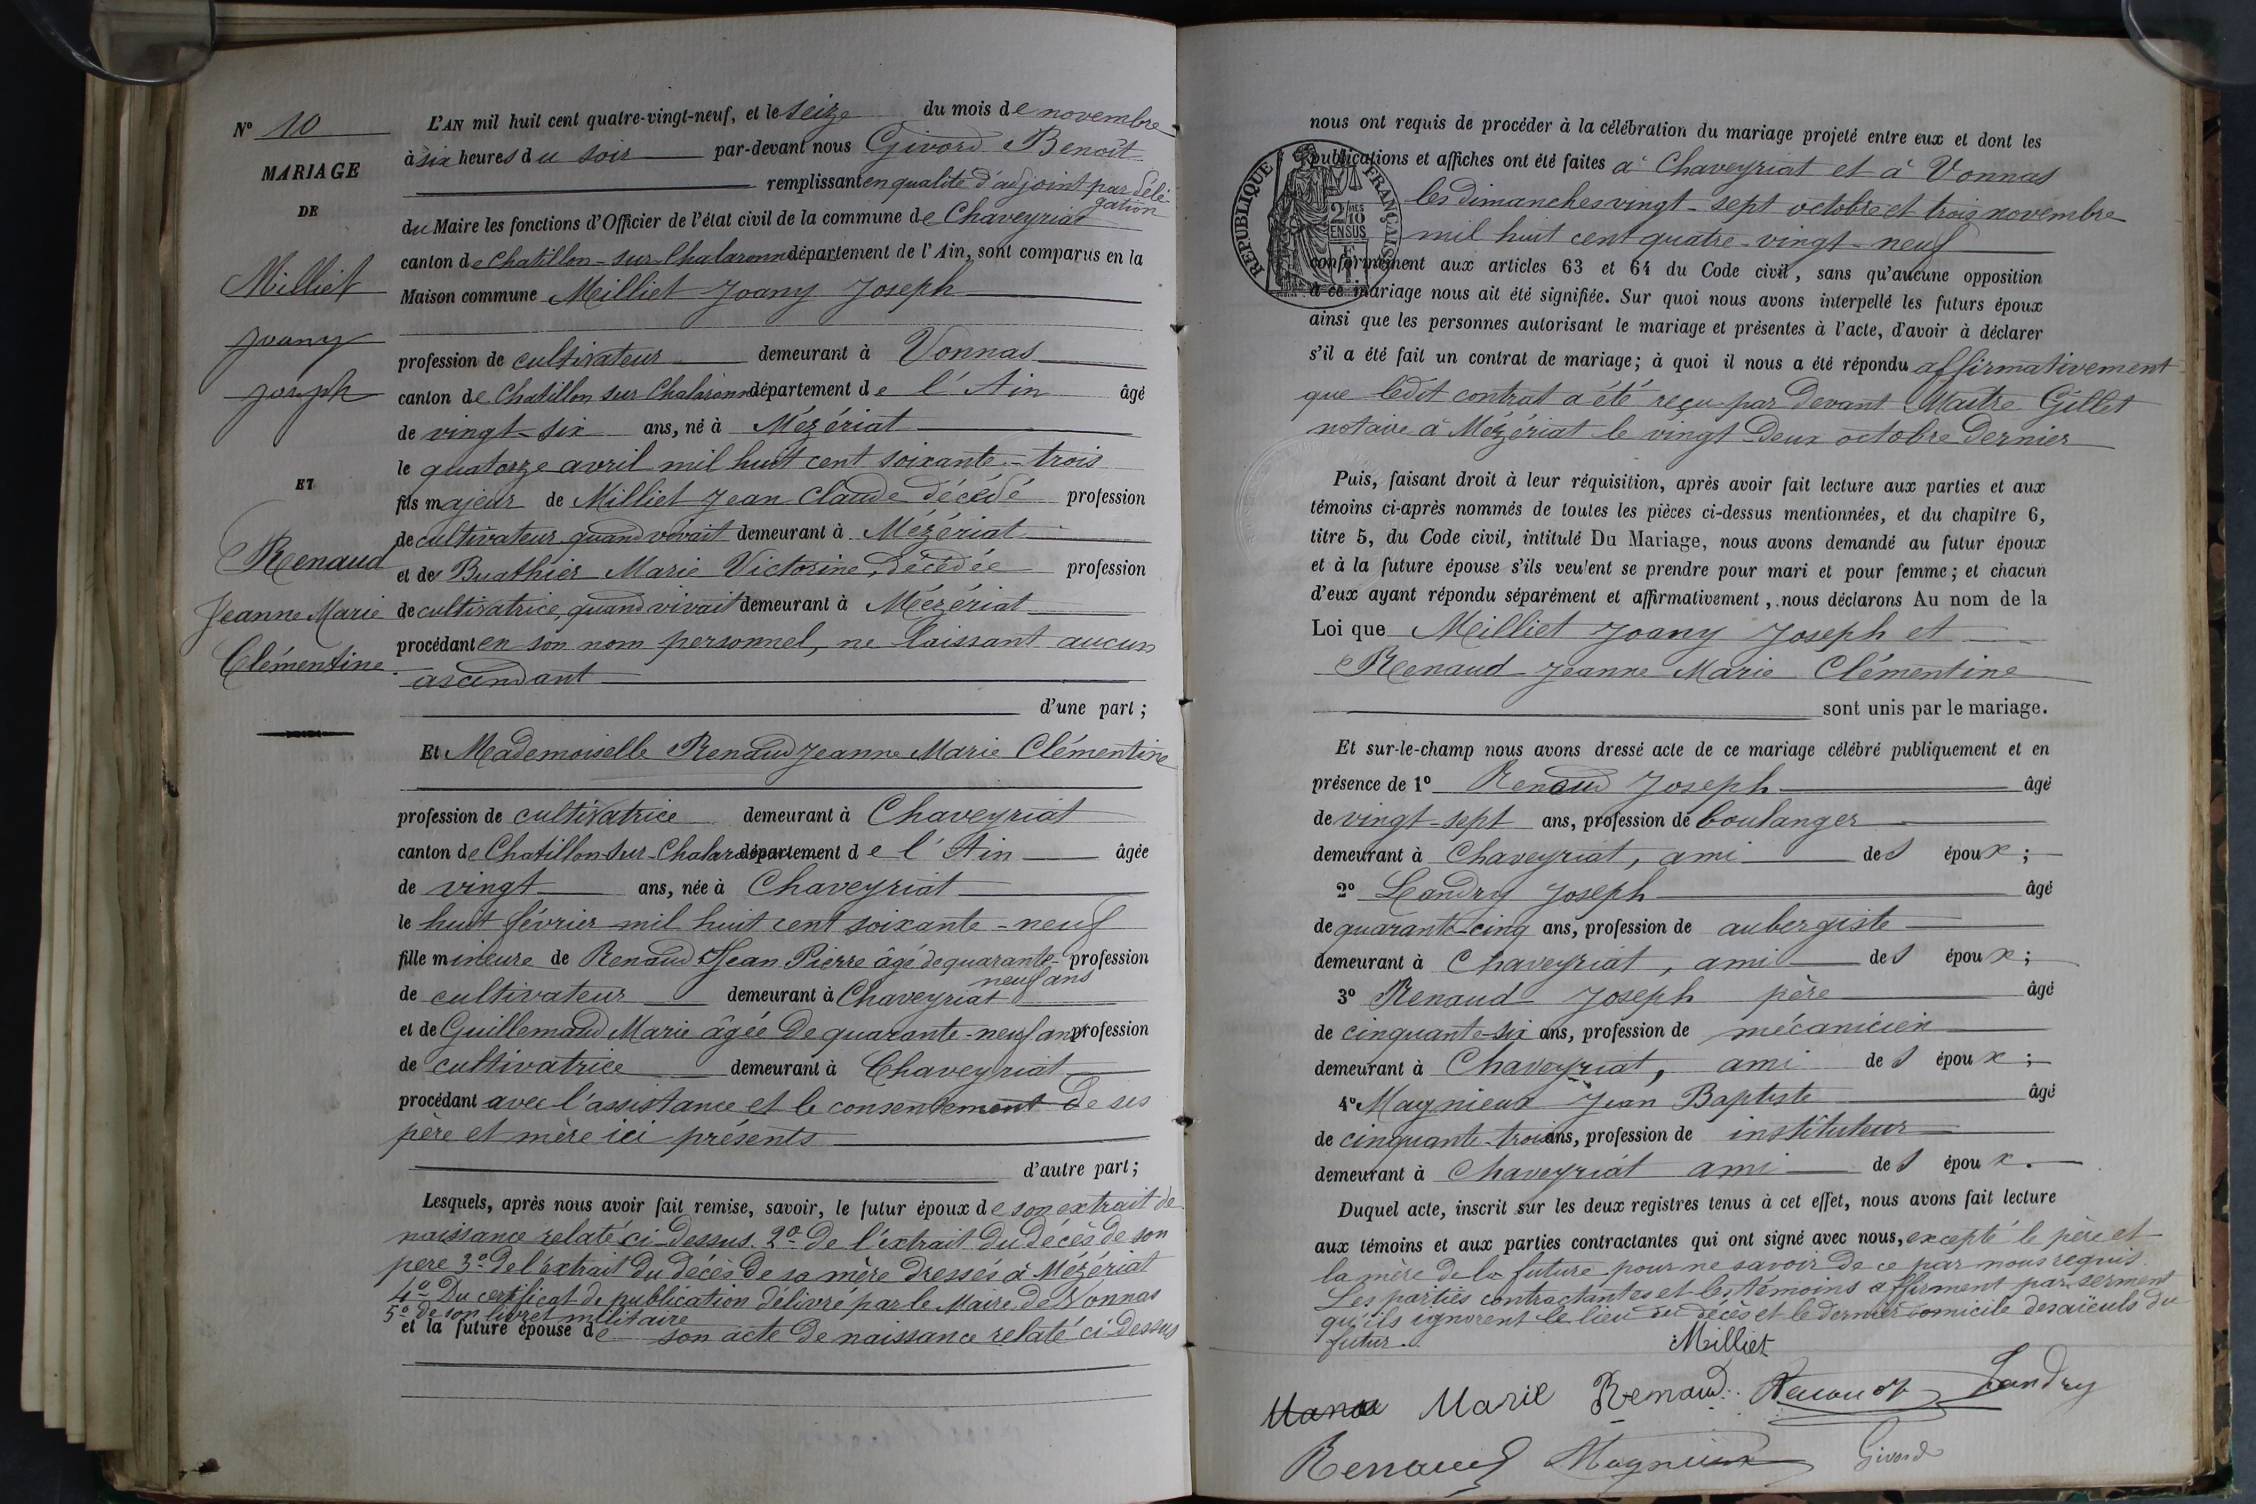 N° 10
MARIAGE
DE
Milliet
Joany
Joseph
ET
Renaud
Jeanne Marie
Clémentine
L'AN mil huit cent quatre-vingt-neuf, et le seize du mois de novembre
à six heures du soir par-devant nous Givord Benoît
remplissant en qualité d'adjoint par délé-
gation
du Maire les fonctions d'Officier de l'état civil de la commune de Chaveyriat
canton de Chatillon-sur-Chalaronne département de l'Ain, sont comparus en la
Maison commune Milliet Joany Joseph
profession de cultivateur demeurant à Vonnas
canton de Chatillon sur Chalaronne département de l'Ain âgé
de vingt-six ans, né à Mézériat
le quatorze avril mil huit cent soixante-trois
fils majeur de Milliet Jean Claude décédé profession
de cultivateur quand vivait demeurant à Mézériat
et de Buathier Marie Victorine, décédée profession
de cultivatrice, quand vivait demeurant à Mézériat
procédant en son nom personnel, ne laissant aucun
ascendant
d'une part;
Et Mademoiselle Renaud Jeanne Marie Clémentine
profession de cultivatrice demeurant à Chaveyriat
canton de Chatillon-sur-Chalar département de l'Ain âgée
de vingt ans, née à Chaveyriat
le huit février mil huit cent soixante-neuf
fille mineure de Renaud Jean Pierre âgé de quarante- profession
neuf ans
de cultivateur demeurant à Chaveyriat
et de Guillemaud Marie âgée de quarante-neuf ans profession
de cultivatrice demeurant à Chaveyriat
procédant avec l'assistance et le consentement de ses
père et mère ici présents
d'autre part;
Lesquels, après nous avoir fait remise, savoir, le futur époux de son extrait de
naissance relaté ci-dessus. 2° de l'extrait du décès de son
père 3° de l'extrait du décès de sa mère dressés à Mézériat
4° Du certificat de publication délivré par le Maire de Vonnas
5° de son livret militaire
et la future épouse de son acte de naissance relaté ci-dessus
nous ont requis de procéder à la célébration du mariage projeté entre eux et dont les
publications et affiches ont été faites à Chaveyriat et à Vonnas
les dimanches vingt-sept octobre et trois novembre
mil huit cent quatre-vingt-neuf
conformément aux articles 63 et 64 du Code civil, sans qu'aucune opposition
à ce mariage nous ait été signifiée. Sur quoi nous avons interpellé les futurs époux
ainsi que les personnes autorisant le mariage et présentes à l'acte, d'avoir à déclarer
s'il a été fait un contrat de mariage; à quoi il nous a été répondu affirmativement
que ledit contrat a été reçu par devant Maître Gillet
notaire à Mézériat le vingt-deux octobre dernier
RÉPUBLIQUE FRANÇAISE
2/10
EN SUS
Puis, faisant droit à leur réquisition, après avoir fait lecture aux parties et aux
témoins ci-après nommés de toutes les pièces ci-dessus mentionnées, et du chapitre 6,
titre 5, du Code civil, intitulé Du Mariage, nous avons demandé au futur époux
et à la future épouse s'ils veulent se prendre pour mari et pour femme; et chacun
d'eux ayant répondu séparément et affirmativement, nous déclarons Au nom de la
Loi que Milliet Joany Joseph et
Renaud Jeanne Marie Clémentine
sont unis par le mariage.
Et sur-le-champ nous avons dressé acte de ce mariage célébré publiquement et en
présence de 1° Renaud Joseph âgé
de vingt-sept ans, profession de boulanger
demeurant à Chaveyriat, ami des époux;
2° Landry Joseph âgé
de quarante-cinq ans, profession de aubergiste
demeurant à Chaveyriat, ami des époux;
3° Renaud Joseph père âgé
de cinquante-six ans, profession de mécanicien
demeurant à Chaveyriat, ami des époux;
4° Magnieux Jean Baptiste âgé
de cinquante-trois ans, profession de instituteur
demeurant à Chaveyriat ami des époux.
Duquel acte, inscrit sur les deux registres tenus à cet effet, nous avons fait lecture
aux témoins et aux parties contractantes qui ont signé avec nous, excepté le père et
la mère de la future pour ne savoir de ce par nous requis.
Les parties contractantes et les témoins affirment par serment
qu'ils ignorent le lieu du décès et le dernier domicile des aïeuls du
futur.
Milliet
Marie Renaud Renaud Landry
Renaud Magnieux Givord